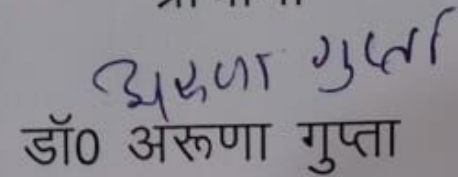 अरुणा गुप्ता
डॉ0 अरूणा गुप्ता